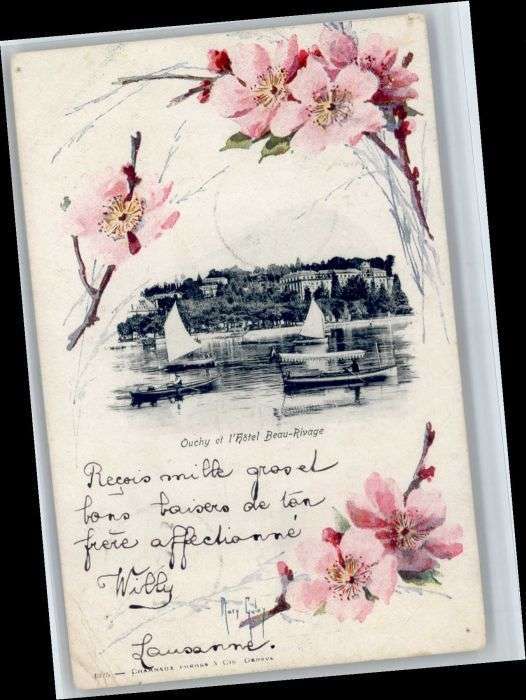 Ouchy et l'Hôtel Beau-Rivage
Reçois mille gros et
bons baisers de ton
frère affectionné
Willy
Lausanne.
Charnaux Frères & Cie Genève